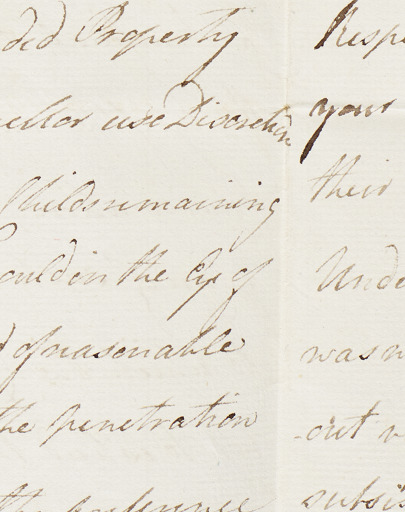 ded Property
use Discretion
Childs remaining
ould in the Eye of
of reasonable
the penetration
the
Respe
your
their
Unde
was n
out
subsis